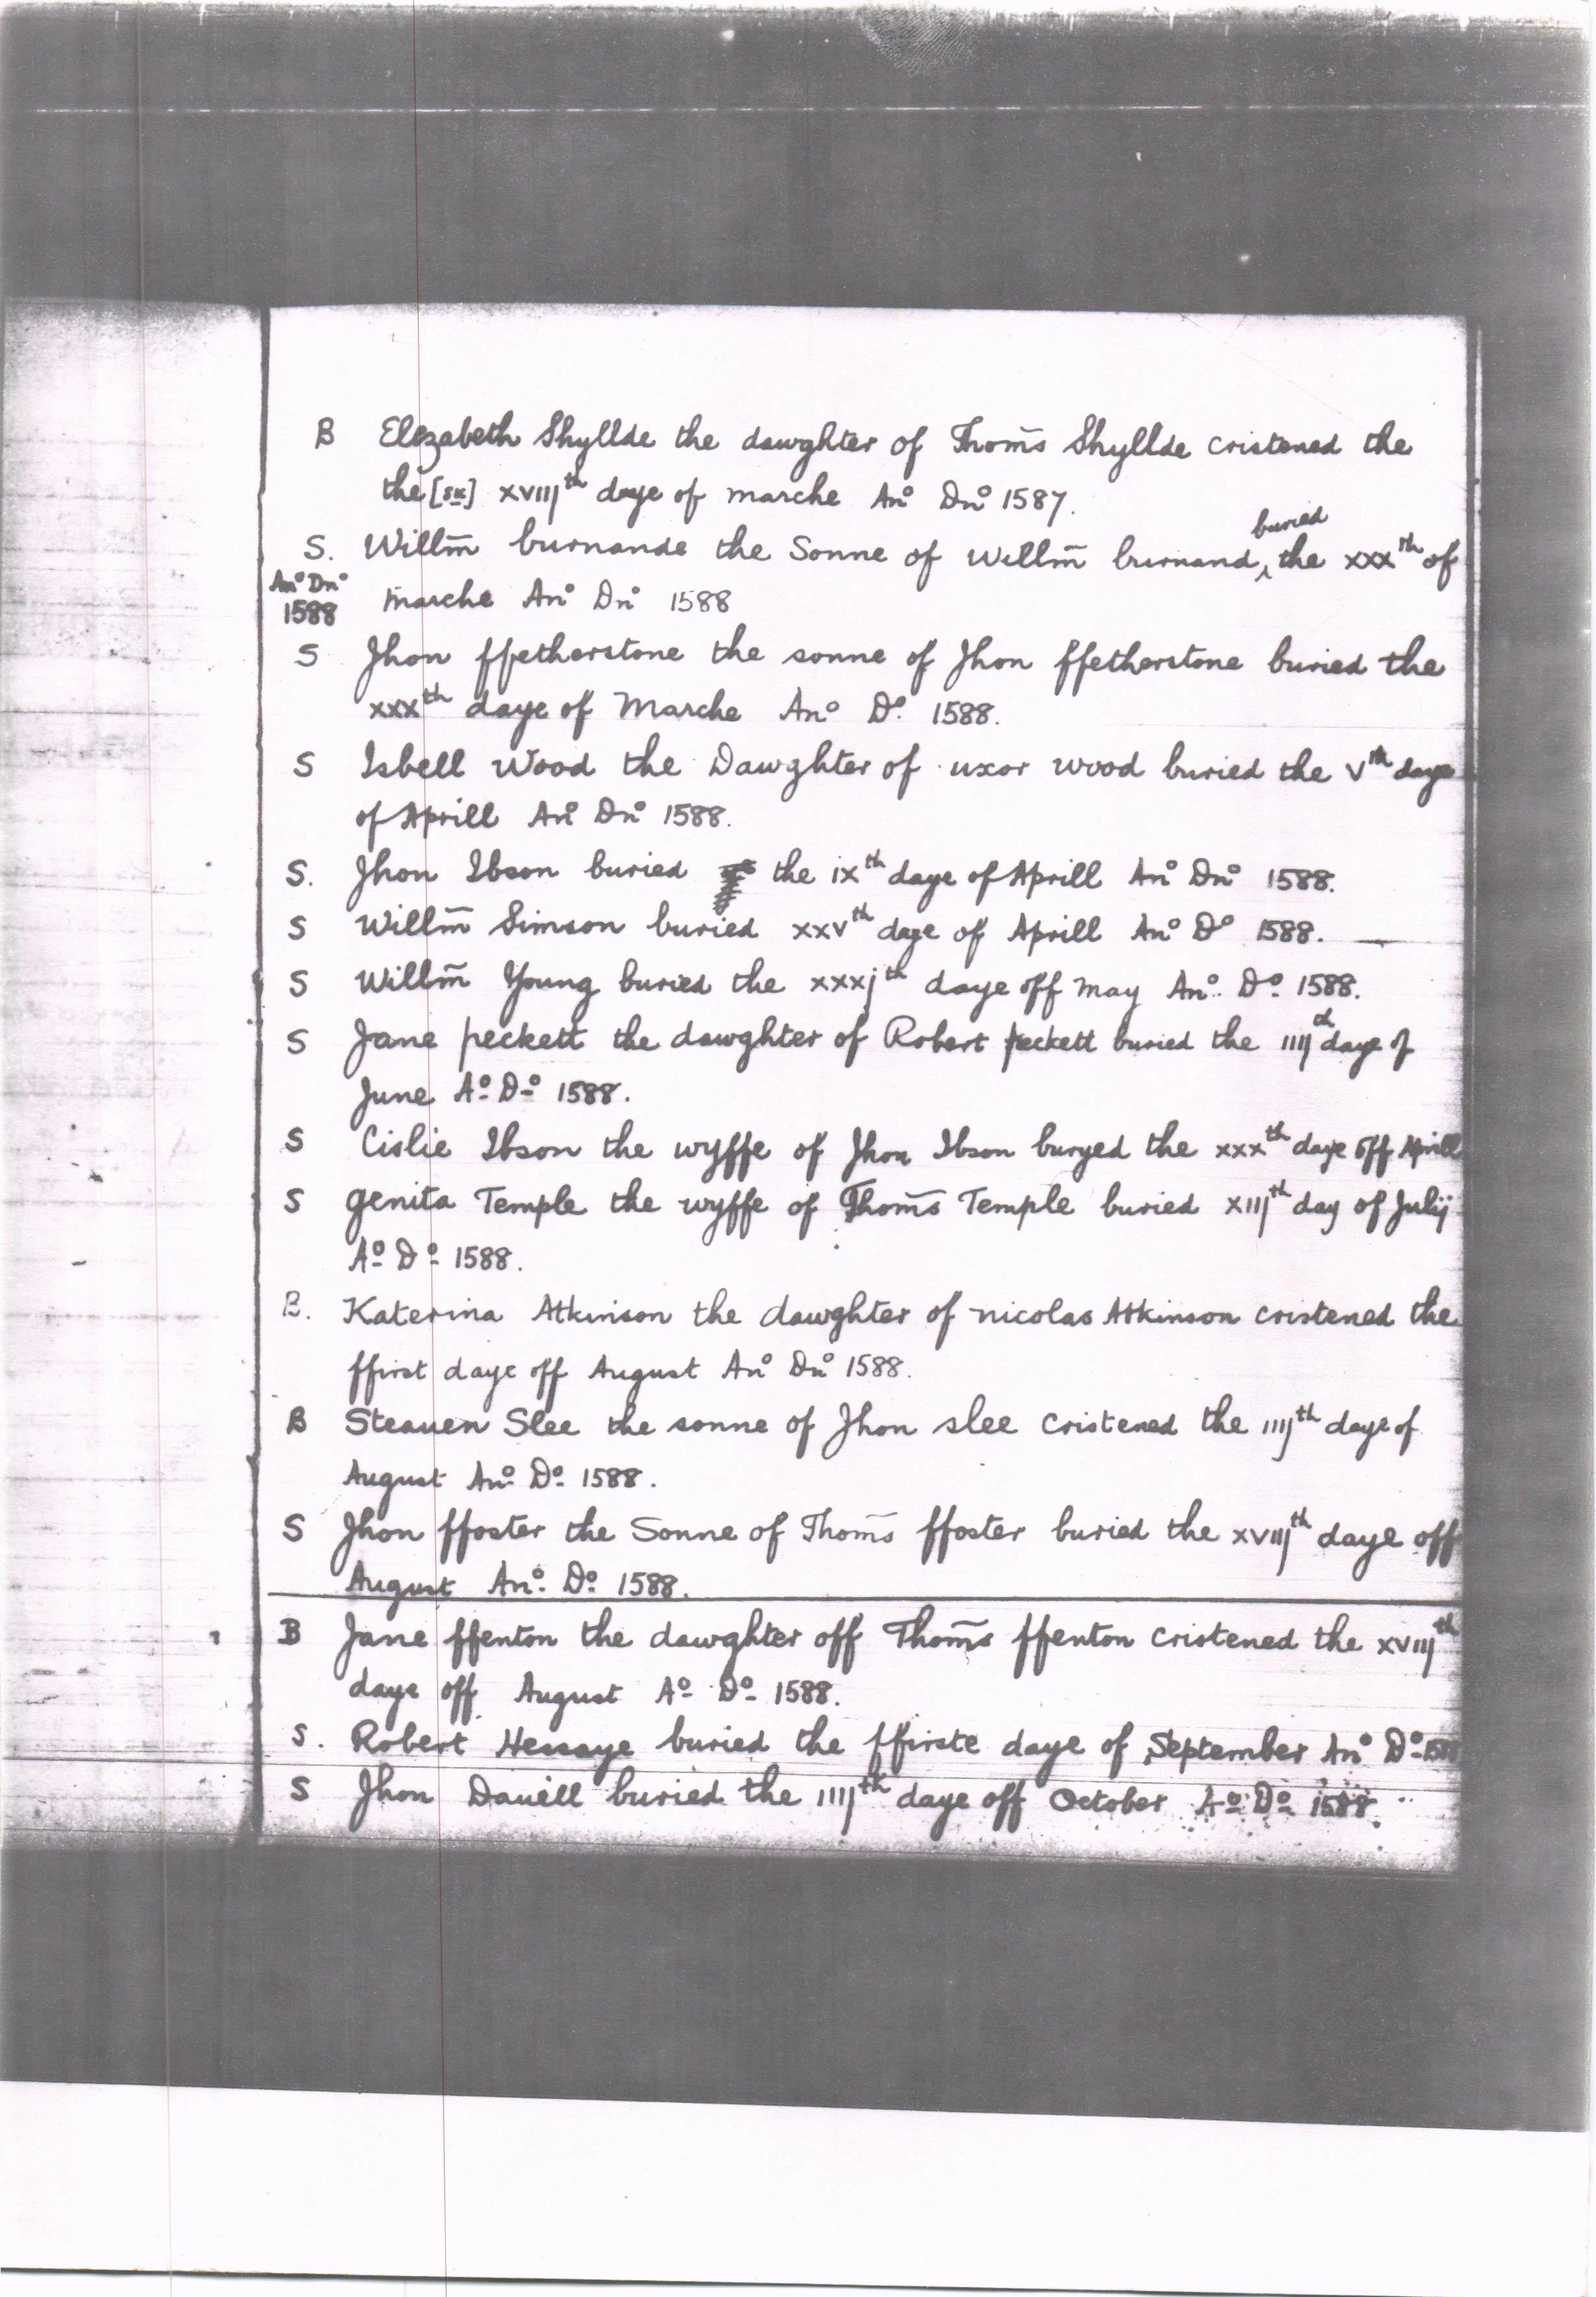 B Elezabeth Shyllde the dawghter of Thom̄s Shyllde cristened the
the [sic] xviijth daye of marche Ano Dno 1587.
buried
S. Willm̄ burnande the Sonne of Willm̄ burnand ‸ the xxxth of
Ano Dno
1588 marche Ano Dno 1588
S Jhon ffetherstone the sonne of Jhon ffetherstone buried the
xxxth daye of Marche Ano Do. 1588.
S Isbell Wood the Dawghter of uxor wood buried the vth daye
of Aprill Ano Dno 1588.
S. Jhon Ibson buried the ixth daye of Aprill Ano Dno 1588.
S Willm̄ Simson buried xxvth daye of Aprill Ano Do 1588.
S Willm̄ Young buried the xxxjth daye off may Ano. Do. 1588.
S Jane peckett the dawghter of Robert peckett buried the iiijth daye of
June Ao. Do. 1588.
S Cislie Ibson the wyffe of Jhon Ibson buryed the xxxth daye off Aprill
S genita Temple the wyffe of Thom̄s Temple buried xiijth day of Julij
Ao. Do. 1588.
B. Katerina Atkinson the dawghter of nicolas Atkinson cristened the
ffirst daye off August Ano Dno 1588.
B Steauen Slee the sonne of Jhon slee cristened the iiijth daye of
August Ano. Do. 1588.
S Jhon ffoster the Sonne of Thom̄s ffoster buried the xviijth daye off
August Ano. Do. 1588.
B Jane ffenton the dawghter off Thom̄s ffenton cristened the xviijth
daye off August Ao. Do. 1588.
S. Robert Hessaye buried the ffirste daye of September Ano Do. 1588
S Jhon Dauell buried the iiijth daye off October Ao. Do. 1588